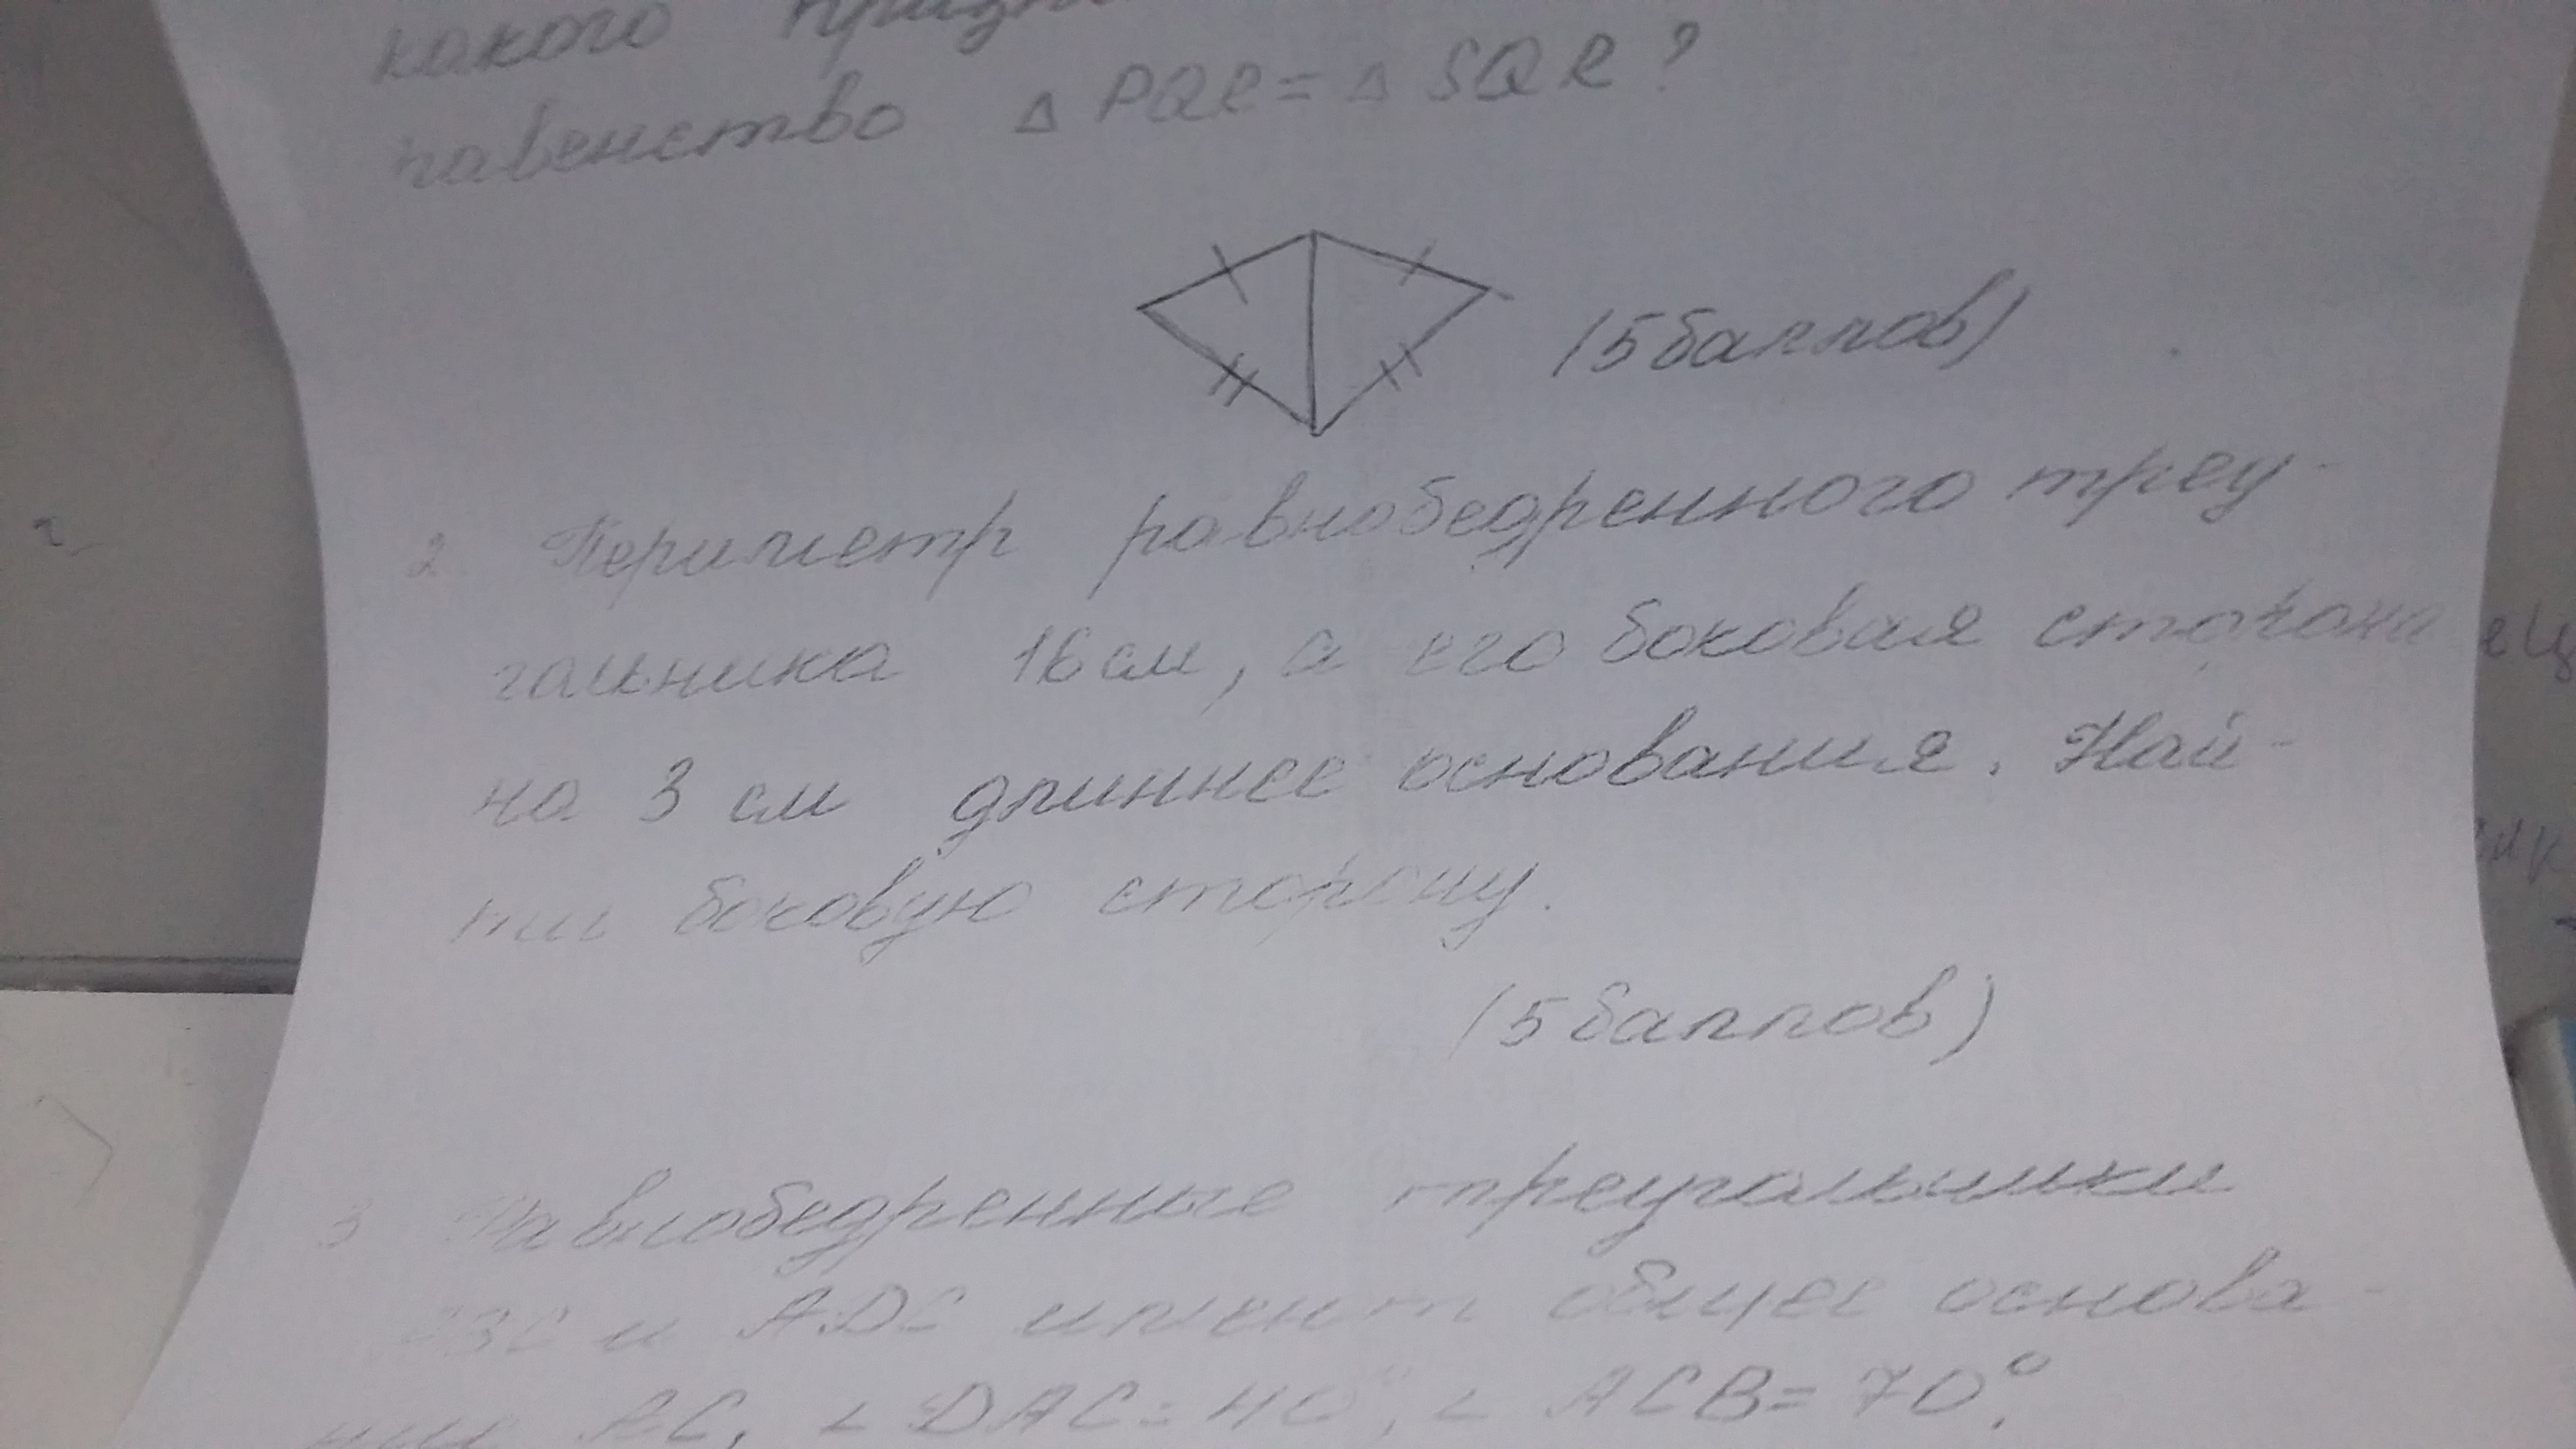 какого
равенство △ PQR = △ SQR ?
(5 баллов)
2. Периметр равнобедренного треу-
гольника 16 см, а его боковая сторона
на 3 см длиннее основания. Най-
ти боковую сторону.
(5 баллов)
3 Равнобедренные треугольники
и ADC имеют общее основа-
нии AC, ∠ DAC = 40°, ∠ ACB = 70°,